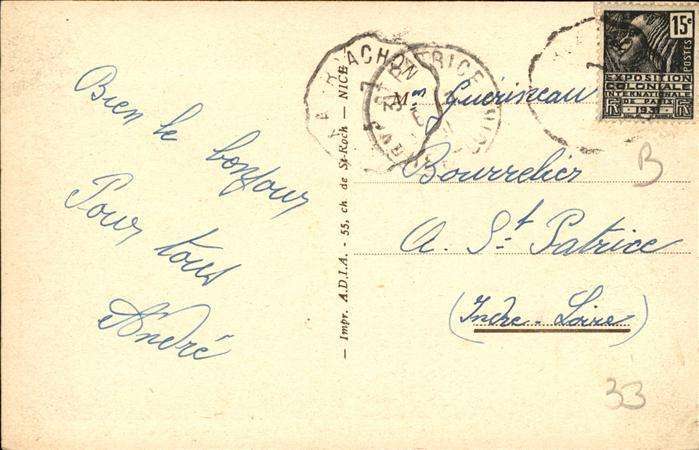 Bien le bonjour
Pour tous
André
— Impr. A.D.I.A. - 55, ch. de St-Roch — NICE
Guerineau
Bourrelier
A. St Patrice
(Indre-Loire)
ST PATRICE
15c
POSTES
EXPOSITION
COLONIALE
INTERNATIONALE
DE PARIS
1931
B
33